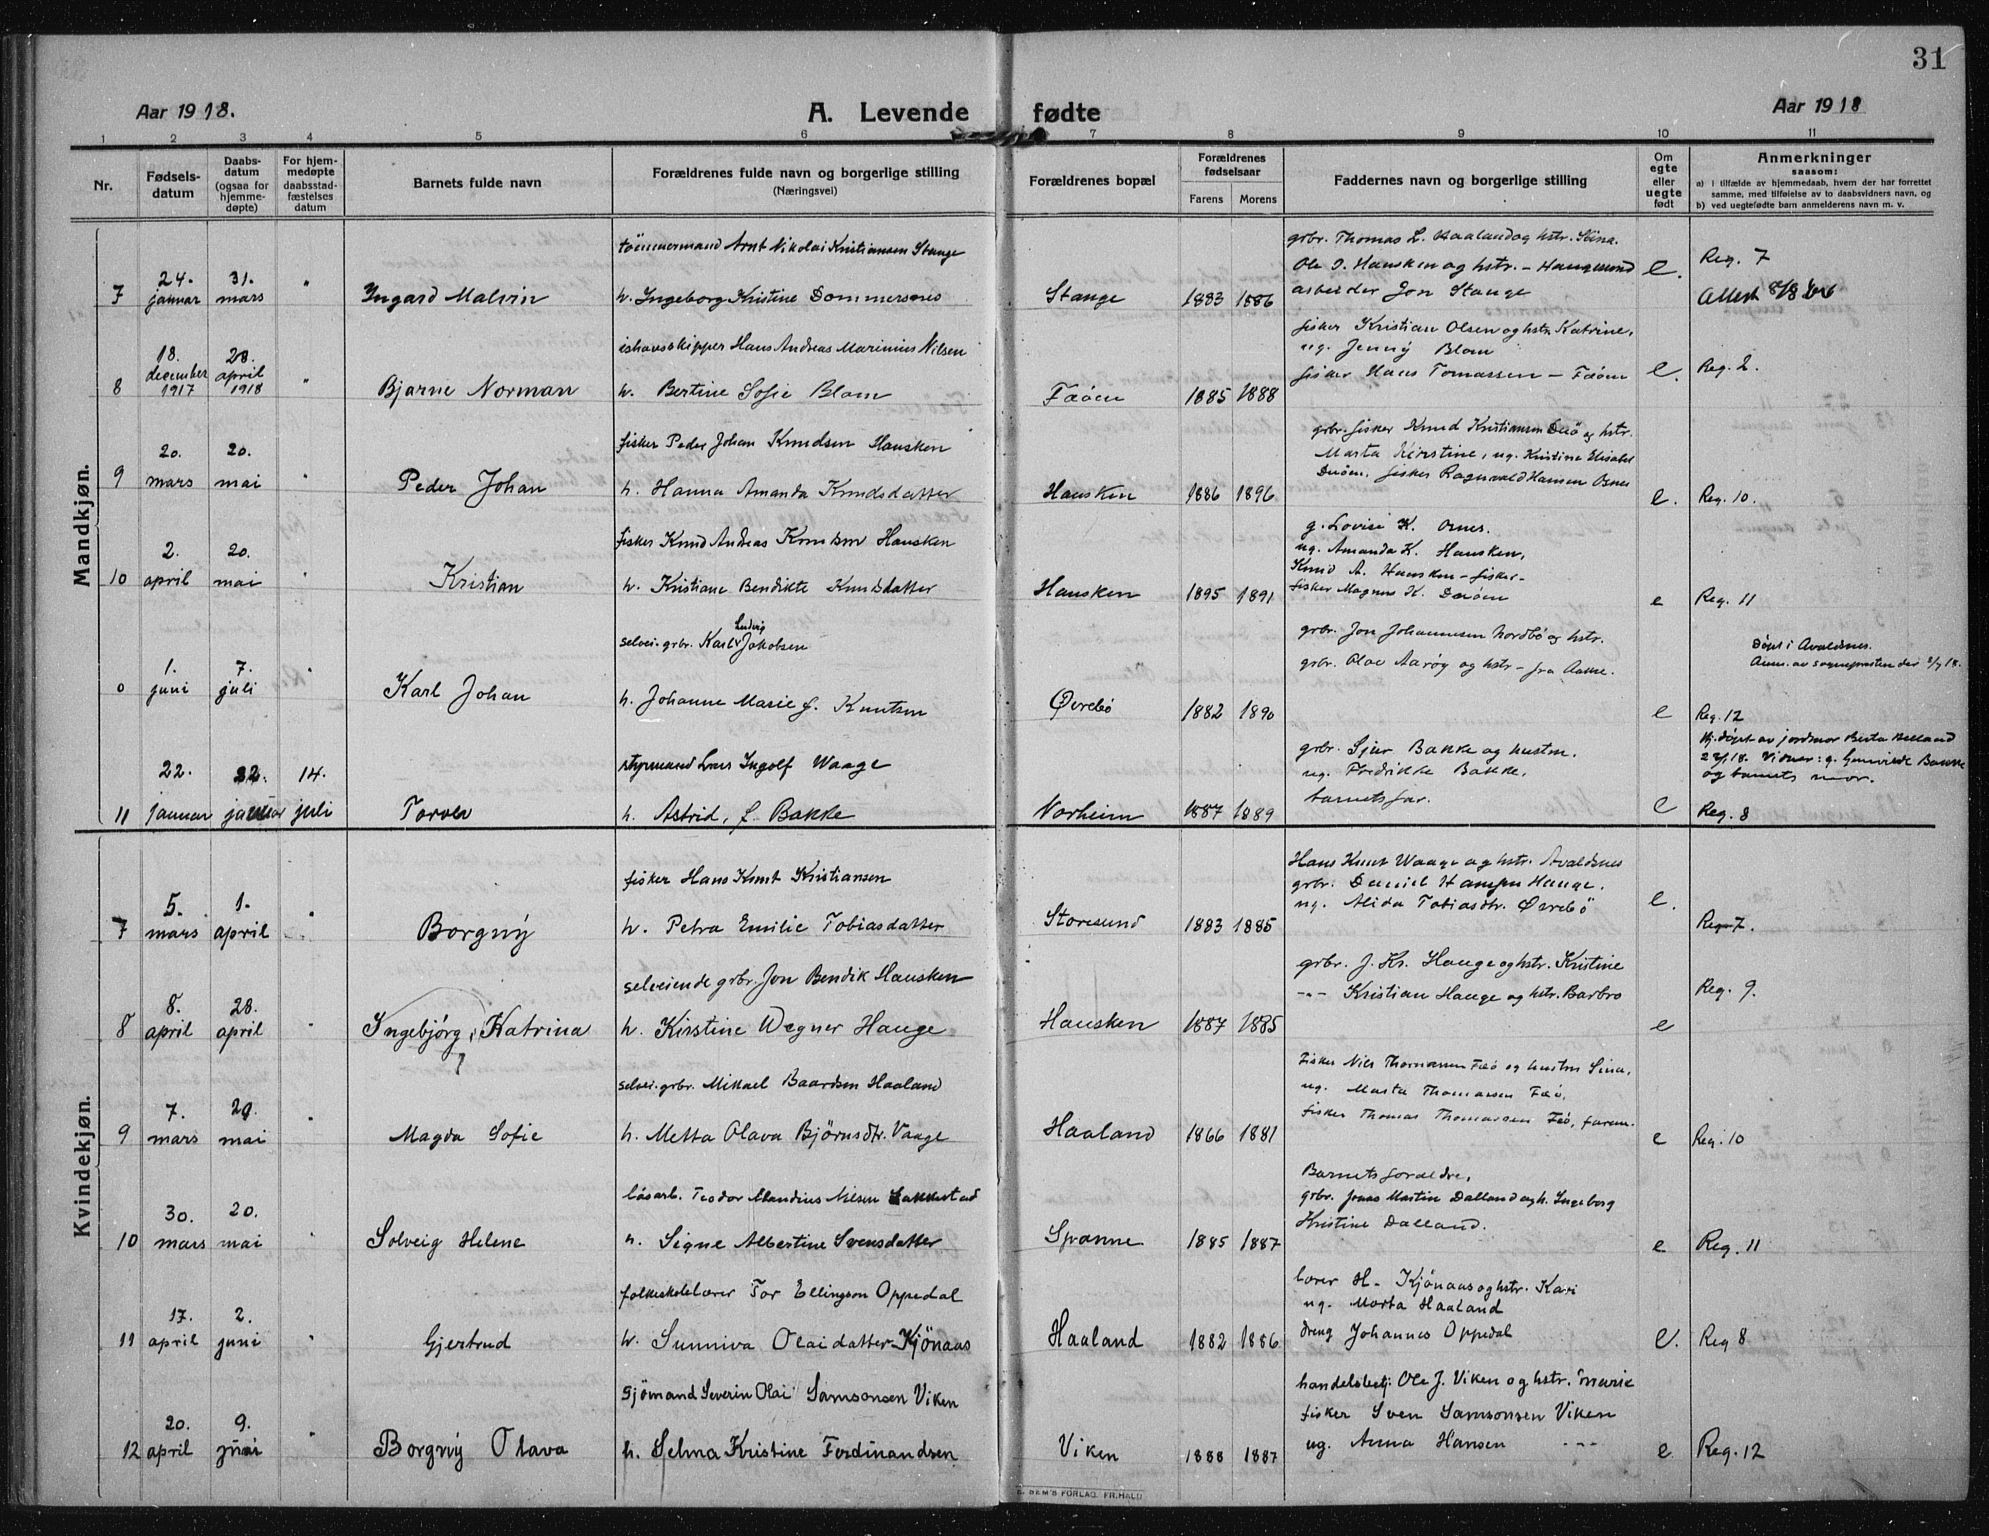 31
Aar 1918. A. Levende fødte Aar 1918
1 2 3 4 5 6 7 8 9 10 11
Nr.
Fødsels-
datum
Daabs-
datum
(ogsaa for
hjemme-
døpte)
For hjem-
medøpte
daabsstad-
fæstelses
datum
Barnets fulde navn
Forældrenes fulde navn og borgerlige stilling
(Næringsvei)
Forældrenes bopæl
Forældrenes
fødselsaar
Farens Morens
Faddernes navn og borgerlige stilling
Om
egte
eller
uegte
født
Anmerkninger
saasom:
a) i tilfælde av hjemmedaab, hvem der har forrettet
samme, med tilføielse av to daabsvidners navn, og
b) ved uegtefødte barn anmelderens navn m. v.
Mandkjøn.
7
24.
januar
31.
mars
"
Ingard Malvin
tömmermand Arnt Nikolai Kristiansen Stange
h. Ingeborg Kristine Dommersnes
Stange
1883 1886
grbr. Thomas L. Haaland og hstr. Stina.
Ole I. Hausken og hstr. – Haugesund
arbeider Jon Stange
e.
Reg. 7
Attest 8/8
8
18.
december
1917
28.
april
1918
"
Bjarne Norman
ishavsskipper Hans Andreas Marinius Nilsen
h. Bertine Sofie Blom
Fæöen
1885 1888
fisker Kristian Olsen og hstr. Katrine,
ug. Jenny Blom
fisker Hans Tomassen – Fæöen
e.
Reg. 2.
9
20.
mars
20.
mai
"
Peder Johan
fisker Peder Johan Knudsen Hausken
h. Hanna Amanda Knudsdatter
Hausken
1886 1896
grbr. fisker Knud Kristiansen og hstr.
Marta Kirstine, ug. Kristine Elisabet
fisker Ragnvald Hansen Osnes
e.
Reg. 10.
10
2.
april
20.
mai
"
Kristian
fisker Knud Andreas Knudsen Hausken
h. Kristiane Bendikte Knudsdatter
Hausken
1895 1891
g. Lovise K. Osnes.
ug. Amanda K. Hausken,
Knud A. Hausken – fisker –
fisker Magnus K.
e
Reg. 11
0
1.
juni
7.
juli
"
Karl Johan
Ludvig
selvei. grbr. Karl Jakobsen
h. Johanne Marie f. Knutsen
Øvrebö
1882 1890
grbr. Jon Johannesen Nordbö og hstr.
grbr. Olav Aaröy og hstr – fra
e
Döpt i Avaldsnes.
Anm. av sognepresten der 8/7 18.
Reg. 12
11
22.
januar
22.
januar
14.
juli
Torleiv
styrmand Lars Ingolf Waage
h. Astrid, f. Bakke
Norheim
1887 1889
grbr. Sjur Bakke og hustru.
ug. Fredrikke Bakke.
barnets far.
e
Hj. döpt av jordmor Berta Helland
22/1 18. Vidner: g. Gunvilde Bakke
og barnets mor.
Reg. 8
Kvindekjøn.
7
5.
mars
1.
april
"
Borgny
fisker Hans Knut Kristiansen
h. Petra Emilie Tobiasdatter
Storesund
1883 1885
Hans Knut Waage og hstr. Avaldsnes
grbr. Daniel Hansen Hauge.
ug. Alida Tobiasdtr. Øvrebö
e.
Reg. 7.
8
8.
april
28.
april
"
Ingebjörg, Katrina
?
selveiende grbr. Jon Bendik Hausken
h. Kirstine Wegner Hauge
Hausken
1887 1885
grbr. J. Kr. Hauge og hstr. Kristine
-"- Kristian Hauge og hstr. Barbro
e
Reg. 9.
9
7.
mars
20.
mai
"
Magda Sofie
selvei. grbr. Mikael Baardsen Haaland
h. Metta Olava Björnsdtr. Vaage
Haaland
1866 1881
fisker Nils Thomassen Fæö og hustru Sina,
ug. Marta Thomassen Fæö,
fisker Thomas Thomassen Fæö, faren.
e
Reg. 10
10
30.
mars
20.
mai
"
Solveig Helene
lösarb. Teodor Mandius Nilsen Sakkestad
h. Signe Albertine Svensdatter
Spanne
1885 1887
Barnets foreldre,
grbr. Jonas Martin Dalland og h. Ingeborg
Kristine Dalland.
e
Reg. 11
11
17.
april
2.
juni
"
Gjertrud
folkeskolelærer Tor Ellingson Oppedal
h. Sunniva Olaidatter Kjönaas
Haaland
1882 1886
lærer H. Kjönaas og hstr. Kari
ug. Marta Haaland
dreng Johannes Oppedal
e.
Reg 8
12
20.
april
9.
juni
"
Borgny Olava
Sjömand Severin Olai Samsonsen Viken
h. Selma Kristine Ferdinandsen
Viken
1888 1887
handelsbetj. Ole J. Viken og hstr. Marie
fisker Sven Samsonsen Viken
ug. Anna Hansen -"-
e
Reg. 12
SEM'S FORLAG. FR.HALD